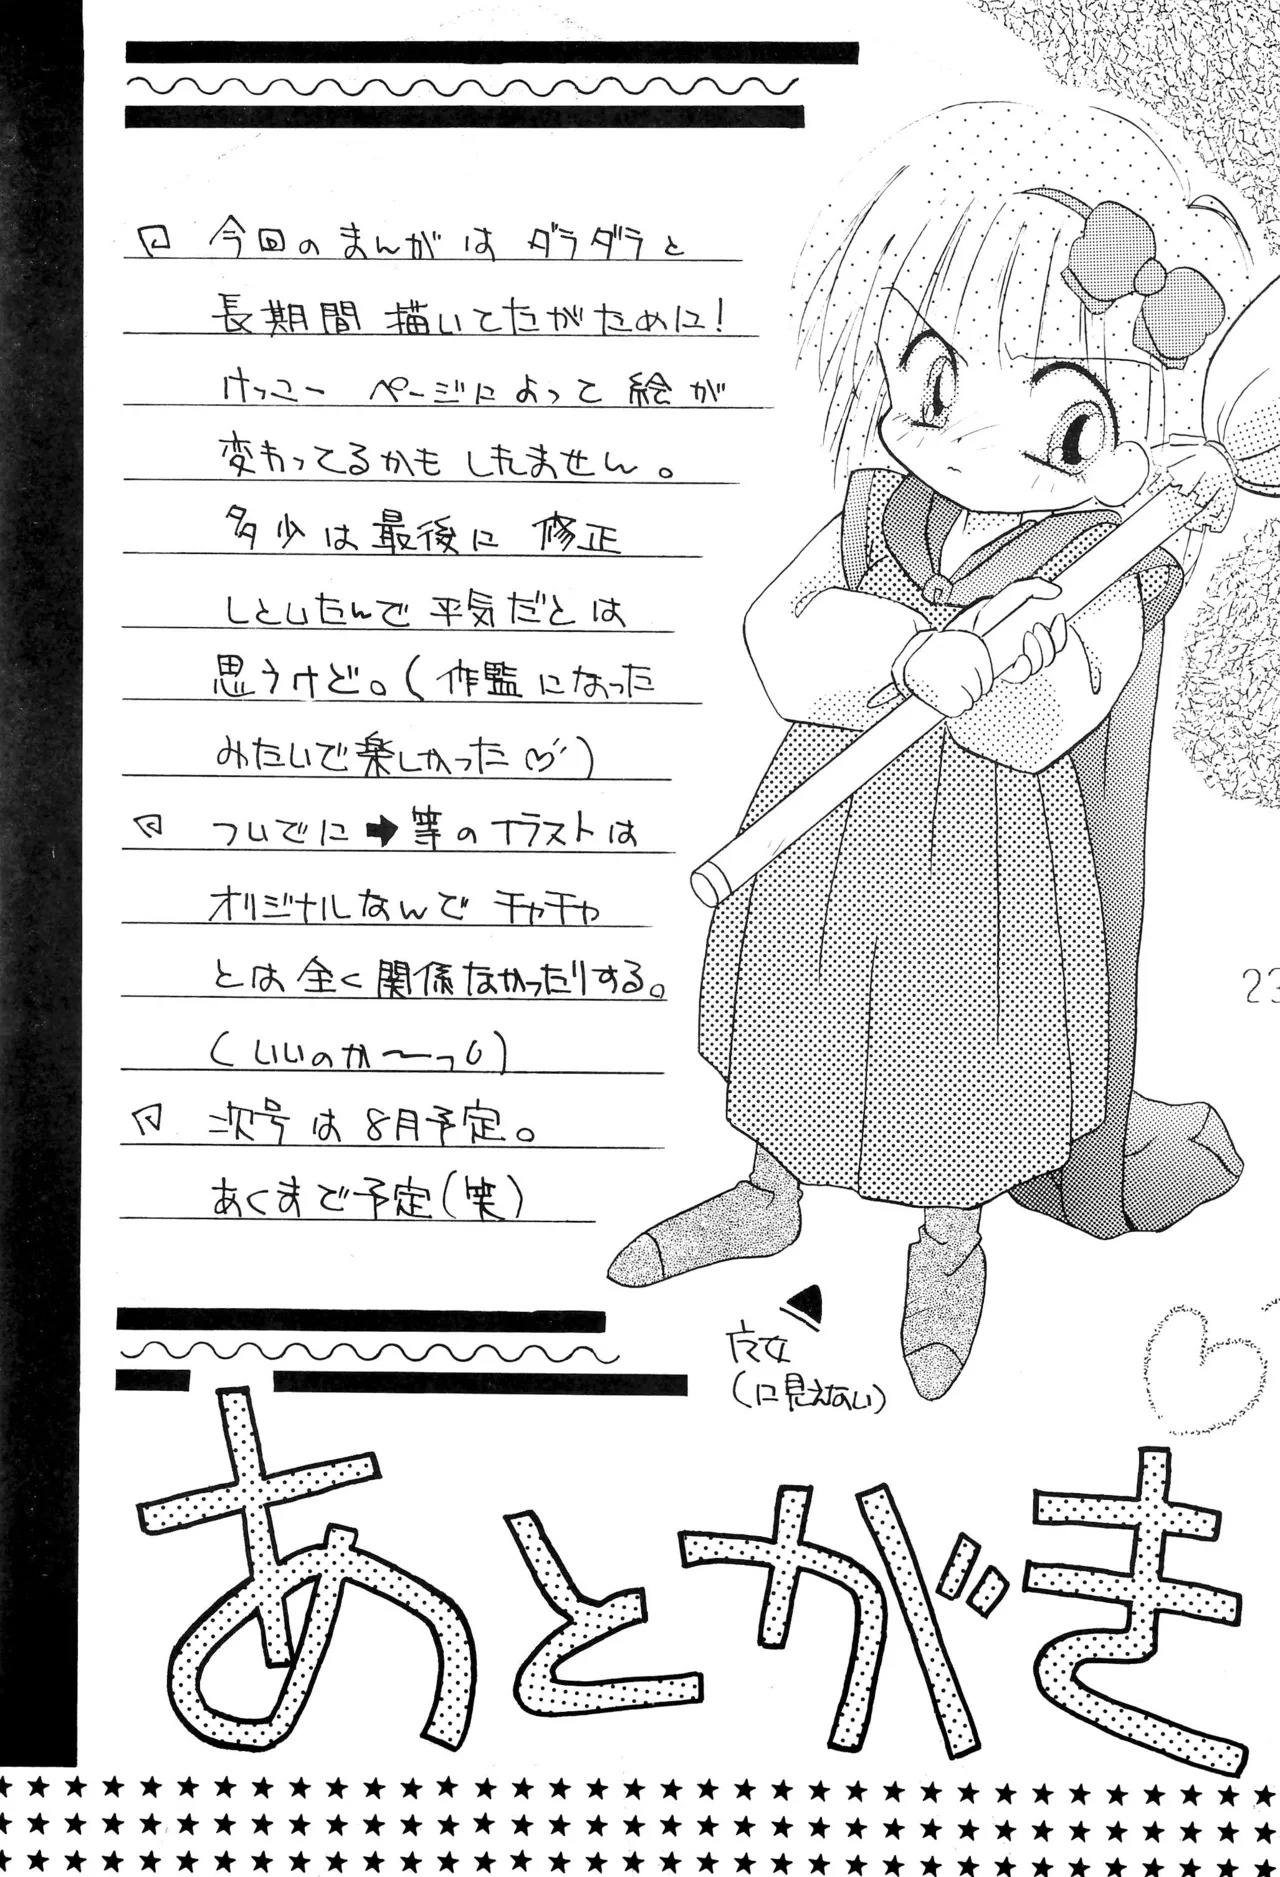 今回のまんがは ダラダラと
長期間 描いてたがために!
けっこー ページによって 絵が
変わってるかも しれません。
多少は最後に 修正
しといたんで 平気だとは
思うけど。(作監になった
みたいで楽しかった♡)
ついでに➡等のイラストは
オリジナルなんで チャチャ
とは全く関係なかったりする。
(いいのか〜〜っ)
次号は8月予定。
あくまで予定(笑)
23
(に見えない)
あとがき